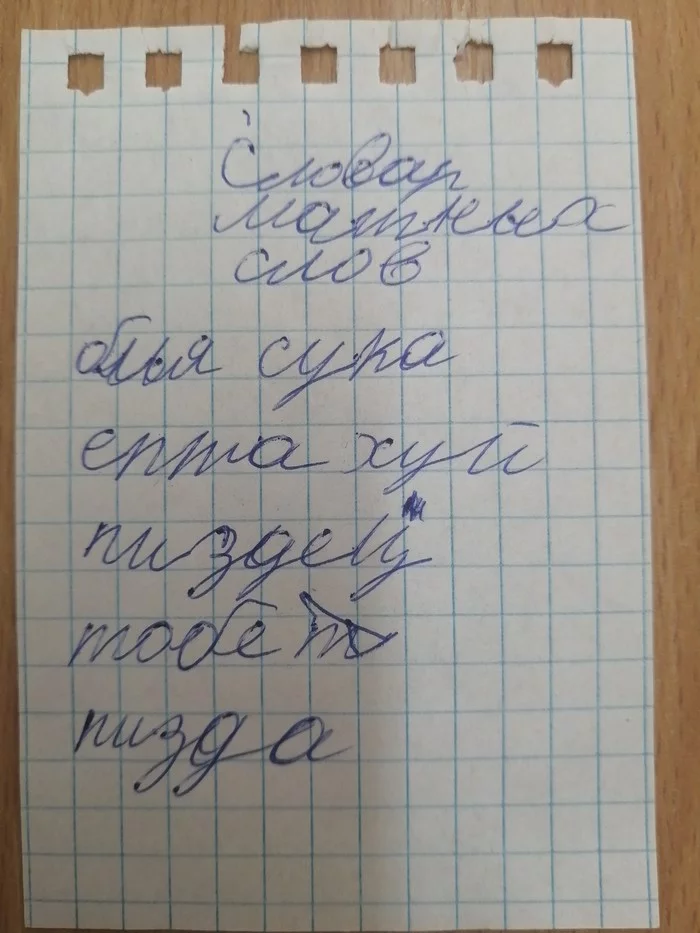 Словар
матных
слов
блья сука
епта хуй
пиздец
тобе
пизда